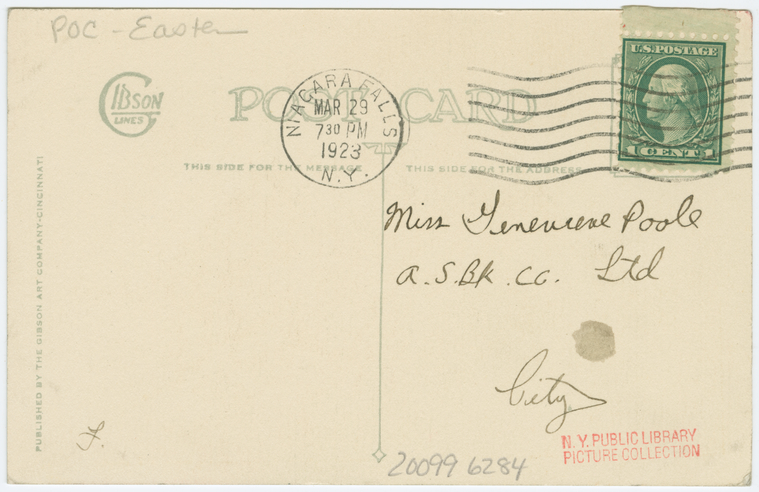 POC - Easter
GIBSON
LINES
POST CARD
NIAGARA FALLS
MAR 29
7 30 PM
1923
N.Y.
U.S. POSTAGE
1 CENT 1
THIS SIDE FOR THE MESSAGE
THIS SIDE FOR THE ADDRESS
PUBLISHED BY THE GIBSON ART COMPANY-CINCINNATI
Miss Genevieve Poole
A.S.BK. CO. Ltd
City
F.
N.Y. PUBLIC LIBRARY
PICTURE COLLECTION
20099 6284